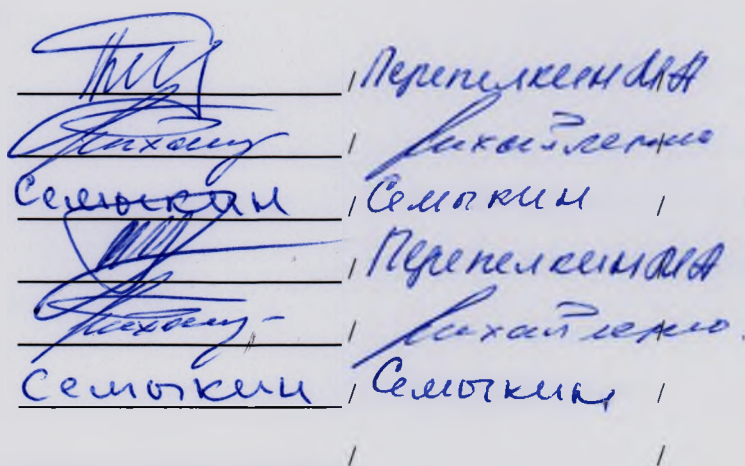 / Перепелкин М А
/ Михайленко /
Семыкин / Семыкин /
/ Перепелкин М А
/ Михайленко
Семыкин / Семыкин /
/ /